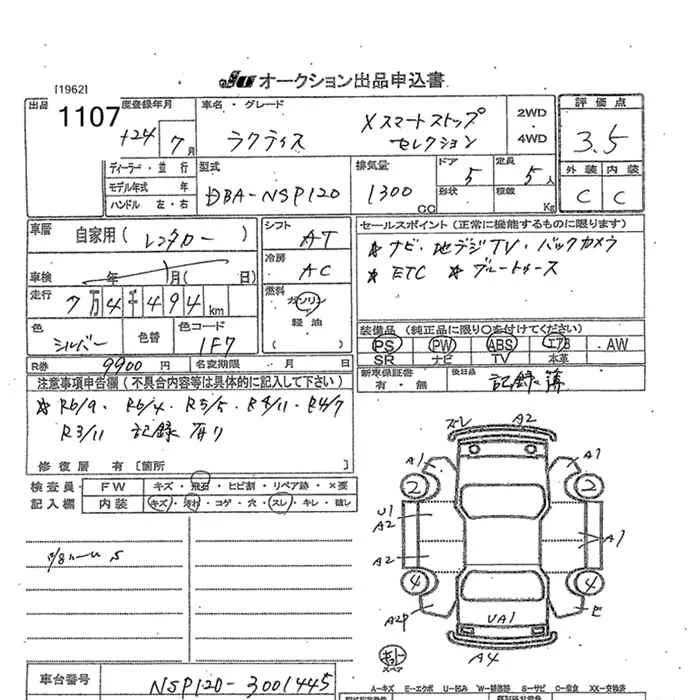 [1962]
JU オークション出品申込書
出品
1107
度登録年月
H24 7月
車名・グレード
ラクティス
Xスマートストップ
セレクション
2WD
4WD
評価点
3.5
外装 内装
C C
ディーラー・並行
モデル年式 年
ハンドル 左・右
型式
DBA-NSP120
排気量
1300 CC
ドア
5
形状
定員
5人
積載
Kg
車歴
自家用(レンタカー)
シフト
AT
車検 年 月(日)
冷房
AC
走行
7万4千494km
燃料
ガソリン
軽油
( )
色
シルバー
色替
色コード
1F7
セールスポイント(正常に機能するものに限ります)
☆ナビ・地デジTV・バックカメラ
☆ETC ☆ブルートゥース
装備品(純正品に限り○を付けてください)
PS PW ABS エアB AW
SR ナビ TV 本革
R券 9900円
名変期限 月 日
新車保証書
有・無
後日品
記録簿
注意事項申告欄(不具合内容等は具体的に記入して下さい)
☆R6/9・R6/4・R5/5・R4/11・R4/7
R3/11 記録有り
修復歴 有[箇所 ]
検査員
記入欄
FW キズ・飛石・ヒビ割・リペア跡・×要
内装 キズ・汚れ・コゲ・穴・スレ・キレ・破レ
ズレ A2
A1 A1
2 2
U1
A2
A1
A2
4 4
A2P
E
UA1
スペア
A4
車台番号
NSP120-3001445
A-キズ E-エクボ U-凹み W-補修跡 S-サビ C-腐食 XX-交換済